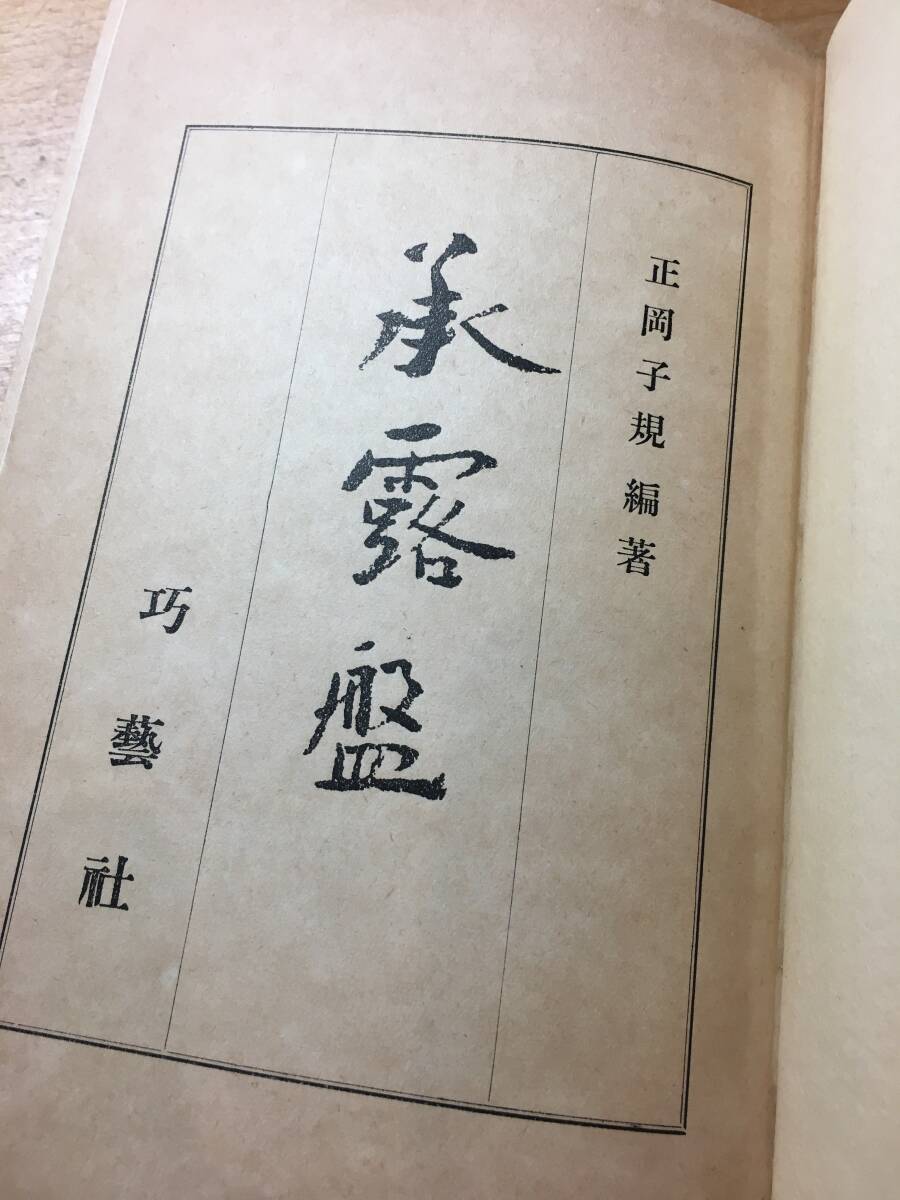 正岡子規 編著
承露盤
巧藝社